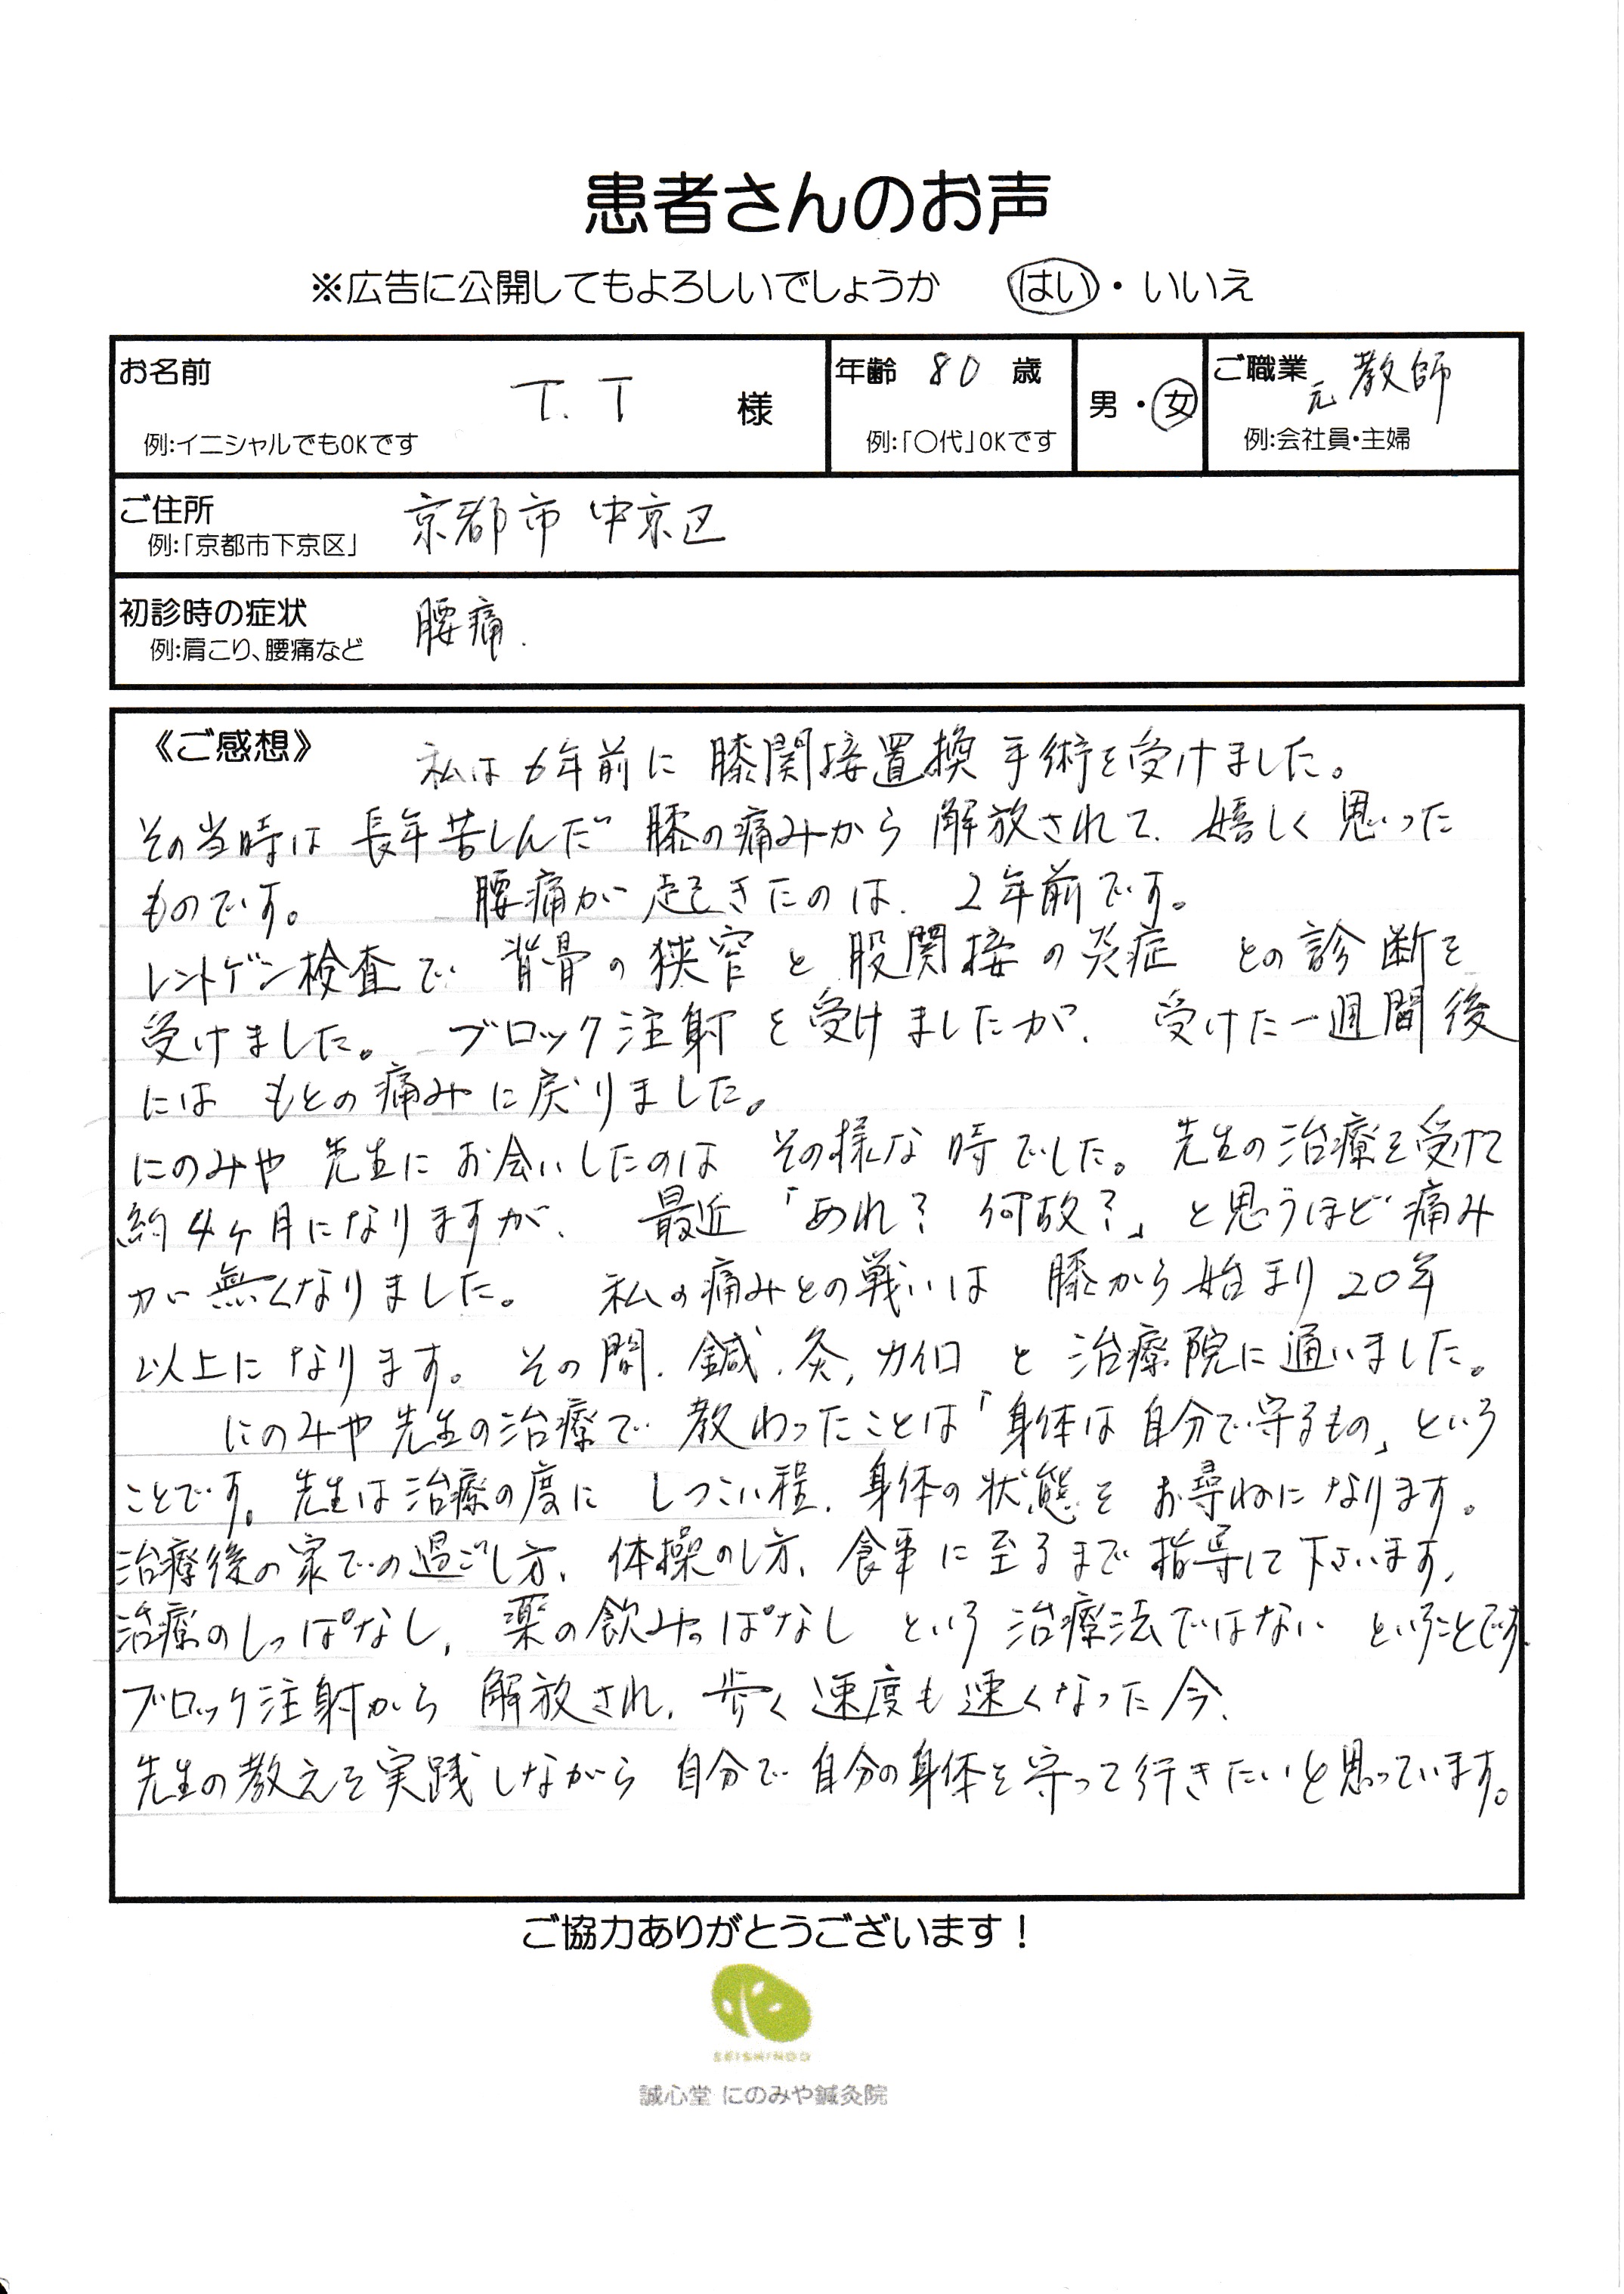 患者さんのお声
※広告に公開してもよろしいでしょうか　はい・いいえ
お名前　T.T　様
例:イニシャルでもOKです
年齢 80 歳
例:「〇代」OKです
男・女
ご職業　元教師
例:会社員・主婦
ご住所　京都市 中京区
例:「京都市下京区」
初診時の症状　腰痛.
例:肩こり、腰痛など
《ご感想》　私は6年前に 膝関接置換 手術を受けました。
その当時は 長年苦しんだ 膝の痛みから 解放されて、嬉しく思った
ものです。　腰痛が 起きたのは、2年前です。
レントゲン検査で 背骨の狭窄と 股関接の炎症 との診断を
受けました。 ブロック注射を受けましたが、 受けた一週間後
には もとの痛みに戻りました。
にのみや 先生に お会いしたのは その様な時でした。 先生の治療を受けて
約4ヶ月になりますが、 最近「あれ? 何故?」と思うほど痛み
が無くなりました。 私の痛みとの戦いは 膝から始まり20年
以上になります。 その間、鍼、灸、カイロと治療院に通いました。
にのみや先生の治療で 教わったことは「身体は 自分で守るもの」という
ことです。 先生は治療の度に しつこい程、身体の状態を お尋ねになります。
治療後の家での過ごし方、体操のし方、食事に至るまで指導して下さいます。
治療のしっぱなし、薬の飲みっぱなし という 治療法ではない ということです。
ブロック注射から 解放され、歩く速度も速くなった今、
先生の教えを実践しながら 自分で 自分の身体を守って行きたいと思っています。
ご協力ありがとうございます!
SEISHINDO
誠心堂 にのみや鍼灸院